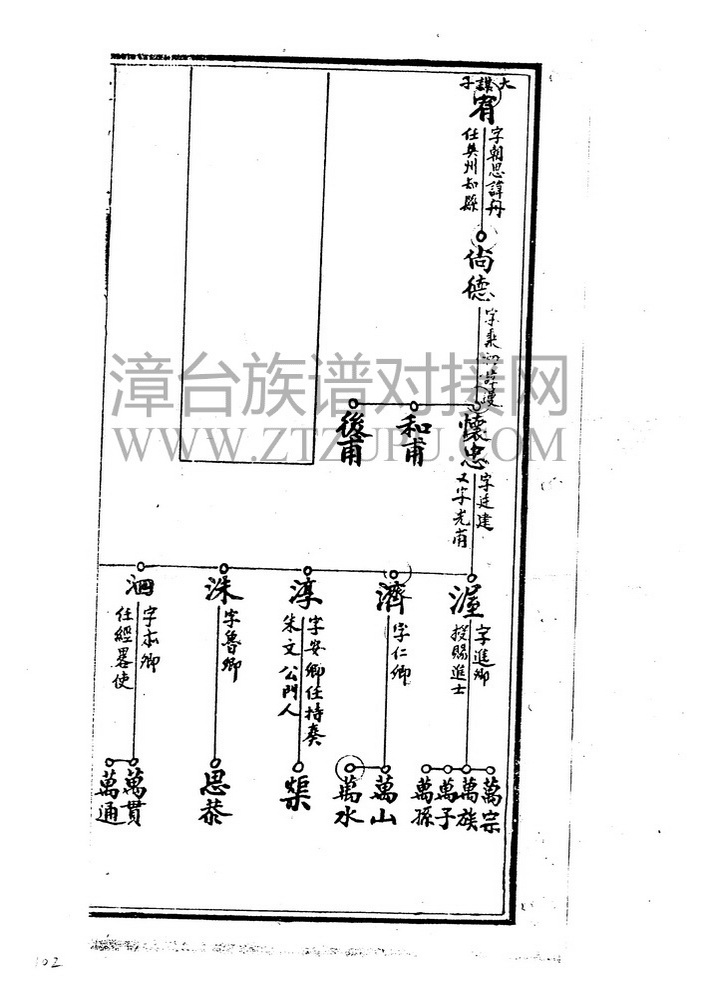 大諆子
宥
字朝思諱丹
任英州知縣
尚德
懷忠
字廷建
又字光甫
和甫
後甫
渥
字進卿
授賜進士
濟
字仁卿
淳
字安卿任持奏
朱文公門人
洙
字魯卿
泗
字本卿
任經畧使
萬宗
萬族
萬子
萬孫
萬山
萬水
榘
思恭
萬貫
萬通
漳台族谱对接网
WWW.ZTZUPU.COM
102